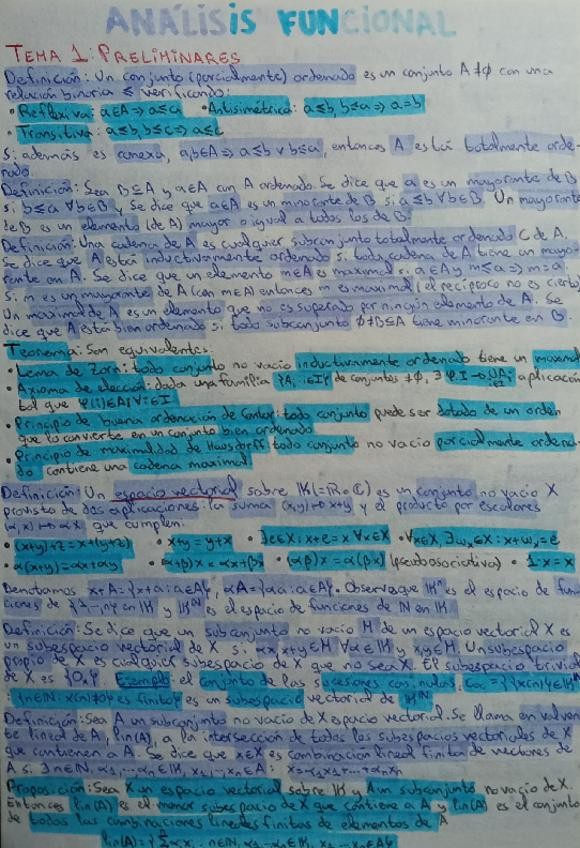 ANÁLISIS FUNCIONAL
TEMA 1: PRELIMINARES
Definición: Un conjunto (parcialmente) ordenado es un conjunto A≠∅ con una
relación binaria ≤ verificando:
• Reflexiva: a∈A ⇒ a≤a • Antisimétrica: a≤b, b≤a ⇒ a=b
• Transitiva: a≤b, b≤c ⇒ a≤c
Si además es conexa, a,b∈A ⇒ a≤b ∨ b≤a, entonces A está totalmente orde-
nado.
Definición: Sea B⊆A y a∈A con A ordenado. Se dice que a es un mayorante de B
si b≤a ∀b∈B y se dice que a∈A es un minorante de B si a≤b ∀b∈B. Un mayorante
de B es un elemento (de A) mayor o igual a todos los de B.
Definición: Una cadena de A es cualquier subconjunto totalmente ordenado C de A.
Se dice que A está inductivamente ordenado si toda cadena de A tiene un mayo-
rante en A. Se dice que un elemento m∈A es maximal si a∈A y m≤a ⇒ m=a
Si m es un mayorante de A (con m∈A) entonces m es maximal (el recíproco no es cierto)
Un maximal de A es un elemento que no es superado por ningún elemento de A. Se
dice que A está bien ordenado si todo subconjunto ∅≠B⊆A tiene minorante en B.
Teorema: Son equivalentes:
• Lema de Zorn: todo conjunto no vacío inductivamente ordenado tiene un maximal
• Axioma de elección: dada una familia {Ai: i∈I} de conjuntos ≠∅, ∃ φ: I → ∪Ai aplicación
tal que φ(i)∈Ai ∀i∈I
• Principio de buena ordenación de Cantor: todo conjunto puede ser dotado de un orden
que lo convierte en un conjunto bien ordenado
• Principio de maximalidad de Hausdorff: todo conjunto no vacío parcialmente ordena-
do contiene una cadena maximal
Definición: Un espacio vectorial sobre 𝕂(=ℝ o ℂ) es un conjunto no vacío X
provisto de dos aplicaciones: la suma (x,y)↦x+y y el producto por escalares
(α,x)↦αx que cumplen:
• (x+y)+z=x+(y+z) • x+y=y+x • ∃e∈X: x+e=x ∀x∈X • ∀x∈X, ∃ωx∈X: x+ωx=e
• α(x+y)=αx+αy • (α+β)x=αx+βx • (αβ)x=α(βx) (pseudoasociativa) • 1·x=x
Denotamos x+A={x+a: a∈A}, αA={αa: a∈A}. Observa que 𝕂ⁿ es el espacio de fun-
ciones de {1,...,n} en 𝕂 y 𝕂^ℕ es el espacio de funciones de ℕ en 𝕂.
Definición: Se dice que un subconjunto no vacío M de un espacio vectorial X es
un subespacio vectorial de X si αx, x+y∈M ∀α∈𝕂 y x,y∈M. Un subespacio
propio de X es cualquier subespacio de X que no sea X. El subespacio trivial
de X es {0}. Ejemplo: el conjunto de las sucesiones casi nulas, c₀₀={{x(n)}∈𝕂^ℕ
: {n∈ℕ: x(n)≠0} es finito} es un subespacio vectorial de 𝕂^ℕ
Definición: Sea A un subconjunto no vacío de X espacio vectorial. Se llama envolven-
te lineal de A, lin(A), a la intersección de todos los subespacios vectoriales de X
que contienen a A. Se dice que x∈X es combinación lineal finita de vectores de
A si ∃n∈ℕ, α₁,...,αn∈𝕂, x₁,...,xn∈A: x=α₁x₁+...+αnxn
Proposición: Sea X un espacio vectorial sobre 𝕂 y A un subconjunto no vacío de X.
Entonces lin(A) es el menor subespacio de X que contiene a A y lin(A) es el conjunto
de todas las combinaciones lineales finitas de elementos de A